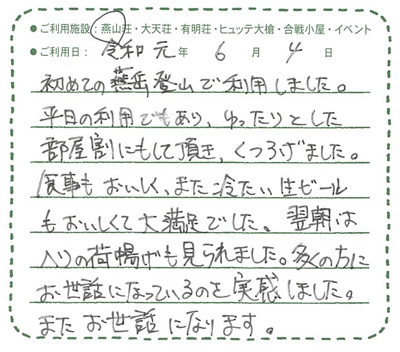 ●ご利用施設:燕山荘・大天荘・有明荘・ヒュッテ大槍・合戦小屋・イベント
●ご利用日: 令和元年 6月 4日
初めての燕岳登山で利用しました。
平日の利用でもあり、ゆったりとした
部屋割にもして頂き、くつろげました。
食事もおいしく、また冷たい生ビール
もおいしくて大満足でした。翌朝は
ヘリの荷揚げも見られました。多くの方に
お世話になっているのを実感しました。
またお世話になります。